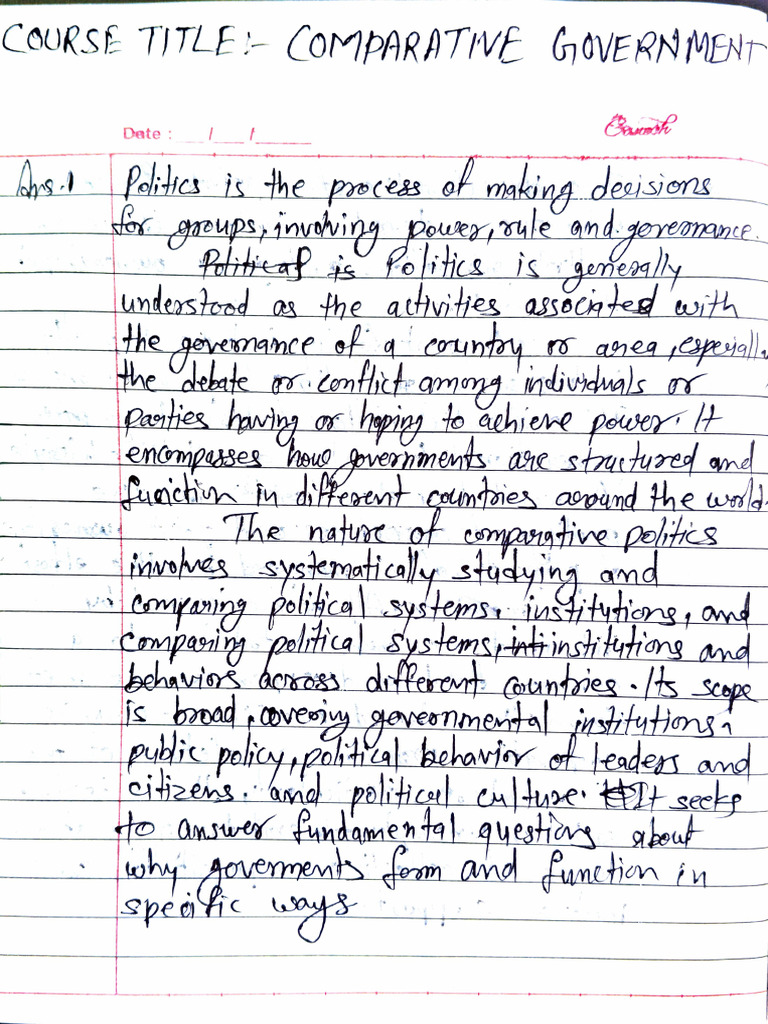 COURSE TITLE:- COMPARATIVE GOVERNMENT
Date : ___/___/______
Ans.1 Politics is the process of making decisions
for groups, involving power, rule and governance.
Political is Politics is generally
understood as the activities associated with
the governance of a country or area, especially
the debate or conflict among individuals or
parties having or hoping to achieve power. It
encompasses how governments are structured and
function in different countries around the world.
The nature of comparative politics
involves systematically studying and
comparing political systems, institutions, and
comparing political systems, inti institutions and
behaviors across different countries. Its scope
is broad, covering governmental institutions,
public policy, political behavior of leaders and
citizens. and political culture. It seeks
to answer fundamental questions about
why goverments form and function in
specific ways